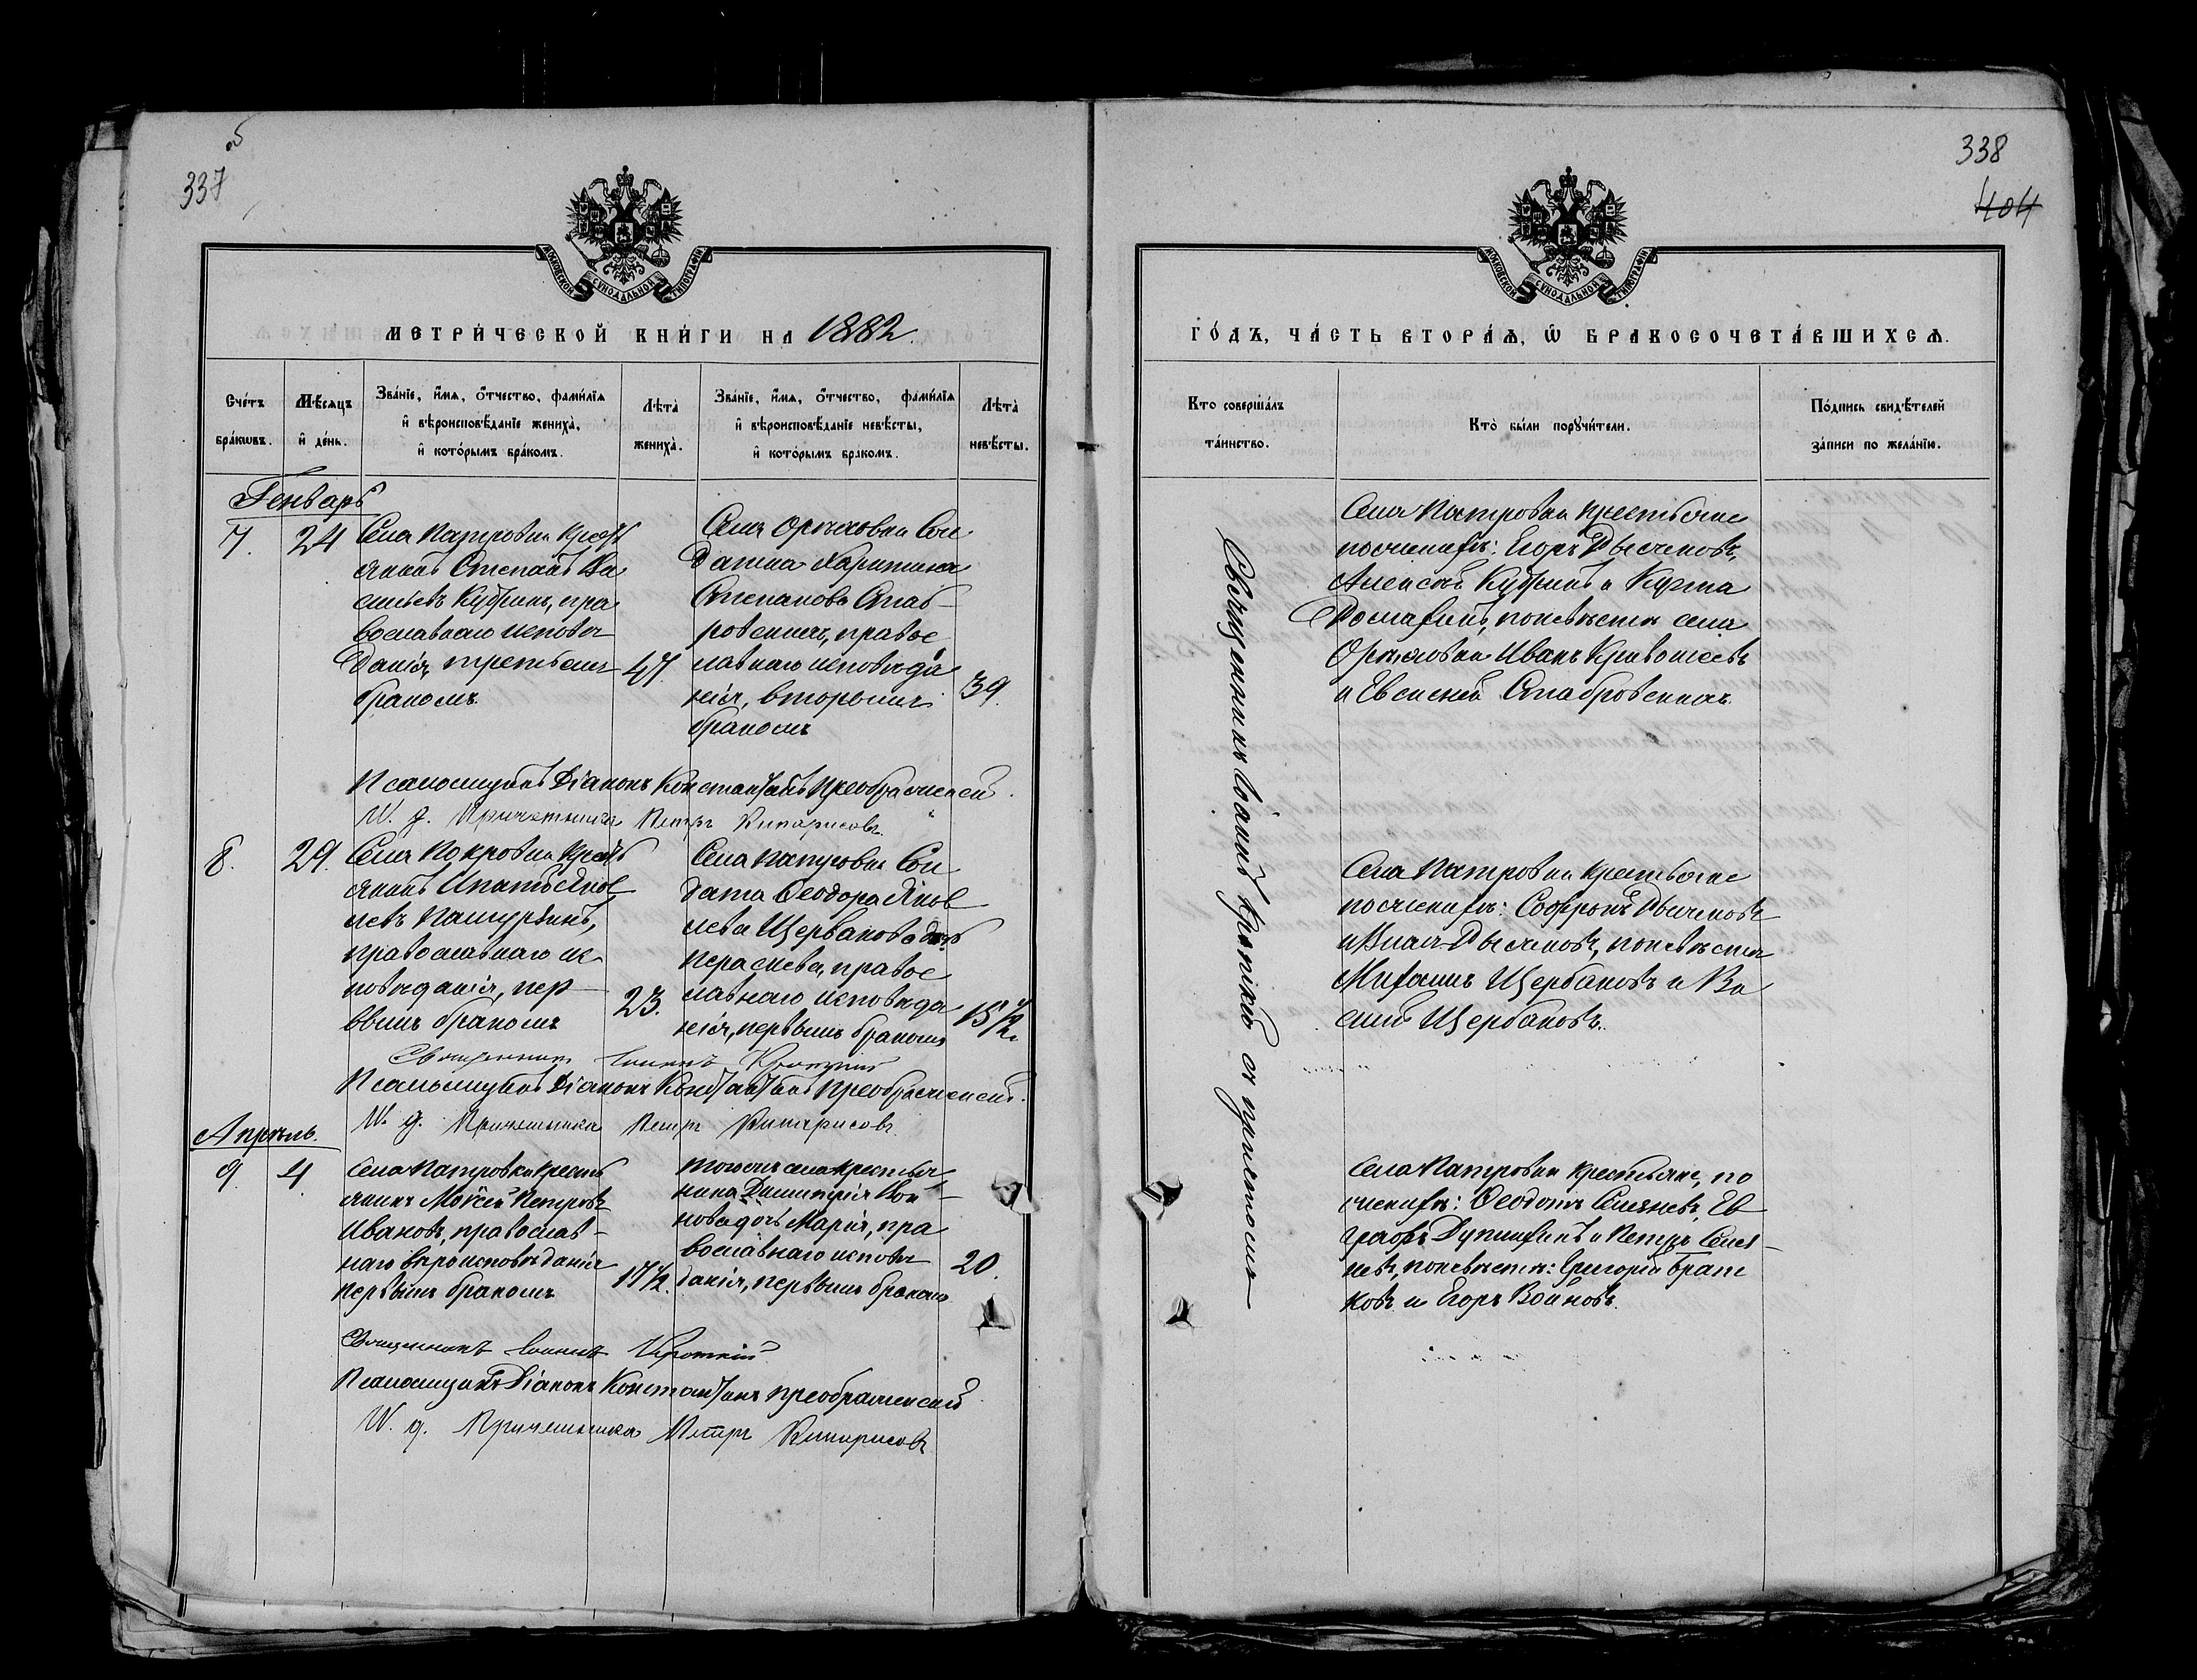 337 об
МОСКОВСКОЙ СѴНОДАЛЬНОЙ ТИПОГРАФІИ
МЕТРИ́ЧЕСКОЙ КНИ́ГИ НА 1882
Сче́тъ бра́кѡвъ.
Мѣ́сяцъ и҆ де́нь.
Зва́нїе, и҆́мѧ, ѻ҆́тчество, фами́лїѧ
и҆ вѣроисповѣ́данїе жениха̀,
и҆ кото́рымъ бра́комъ.
Лѣта̀ жениха̀.
Зва́нїе, и҆́мѧ, ѻ҆́тчество, фами́лїѧ
и҆ вѣроисповѣ́данїе невѣ́сты,
и҆ кото́рымъ бра́комъ.
Лѣта̀ невѣ́сты.
Генварь
7.
24
Села Патровки Кресть
янинъ Степанъ Ва
сильевъ Кубринъ, пра
вославнаго исповѣ
данія, третьимъ
бракомъ.
47.
Села Орѣховки Сол
датка
Степанова Стаб-
ровскихъ, правос
лавнаго исповѣда
нія, вторымъ
бракомъ
39.
Псаломщикъ Діаконъ Константинъ Преображенскій.
И. д. Причетника Петръ Кипарисовъ.
8.
29.
Села Покровки Крест
янинъ Игнатъ Яков
левъ
православнаго ис
повѣданія, пер-
вымъ бракомъ
23.
Села Патровки Сол
дата Ѳеодора Яков
лева Щербакова дочь
правос
лавнаго исповѣда
нія, первымъ бракомъ
15 1/2.
Священникъ Іоаннъ Кроткій
Псаломщикъ Діаконъ Константинъ Преображенскій.
И. д. Причетника Петръ Кипарисовъ.
Апрѣль.
9.
4.
Села Патровки Кресть
янинъ Моѵсей Петровъ
Ивановъ, православ-
наго вѣроисповѣданія
первымъ бракомъ.
17 1/2.
Тогоже села крестья
нина Димитрія Вои-
нова дочь Марія, пра
вославнаго исповѣ
данія, первымъ бракомъ
20.
Священникъ Іоаннъ Кроткій
Псаломщикъ Діаконъ Константинъ Преображенскій
И. д. Причетника Петръ Кипарисовъ
338
404
МОСКОВСКОЙ СѴНОДАЛЬНОЙ ТИПОГРАФІИ
ГО́ДЪ, ЧА́СТЬ ВТОРА́Ѧ, Ѽ БРАКОСОЧЕТА́ВШИХСѦ.
Кто̀ соверша́лъ
та́инство.
Кто̀ бы́ли порꙋчи́тели.
По́дпись свидѣ́телей
за́писи по жела́нїю.
Священникъ Іоаннъ Кроткій съ причтомъ
Села Патровки Крестьяне
по женихѣ: Егоръ
Алексѣй Кубринъ и Кузма
по невѣстѣ села
Орѣховки Иванъ Кривошеевъ
и Евсеній Стабровскихъ.
Села Патровки Крестьяне
по женихѣ: Софронъ
по невѣстѣ
Михаилъ Щербаковъ и Ва
силій Щербаковъ.
Села Патровки Крестьяне, по
женихѣ: Ѳеодотъ Ев
графъ и Петръ
по невѣстѣ: Григорій Брат
ковъ и Егоръ Воиновъ.